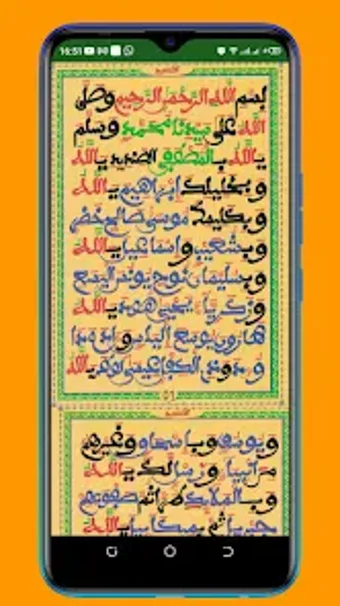 16:51
بسم الله الرحمن الرحيم وصلى
الله على سيدنا محمد وسلم
يا الله بالمصطفى يا الله
وبخليلك إبراهيم يا الله
وبكليمك موسى صالح خضر
وبشعيب واسماعيل يا الله
وبسليمان نوح يونس اليسع
وزكرياء يحيى هود يا الله
هارون يوشع الياس و
الكفل عيسى يا الله
01
ويوسف وباسحاق وغيرهم
من انبيا ورسل لك يا الله
وبالملائك ثم صفوتهم
ثم يا الله